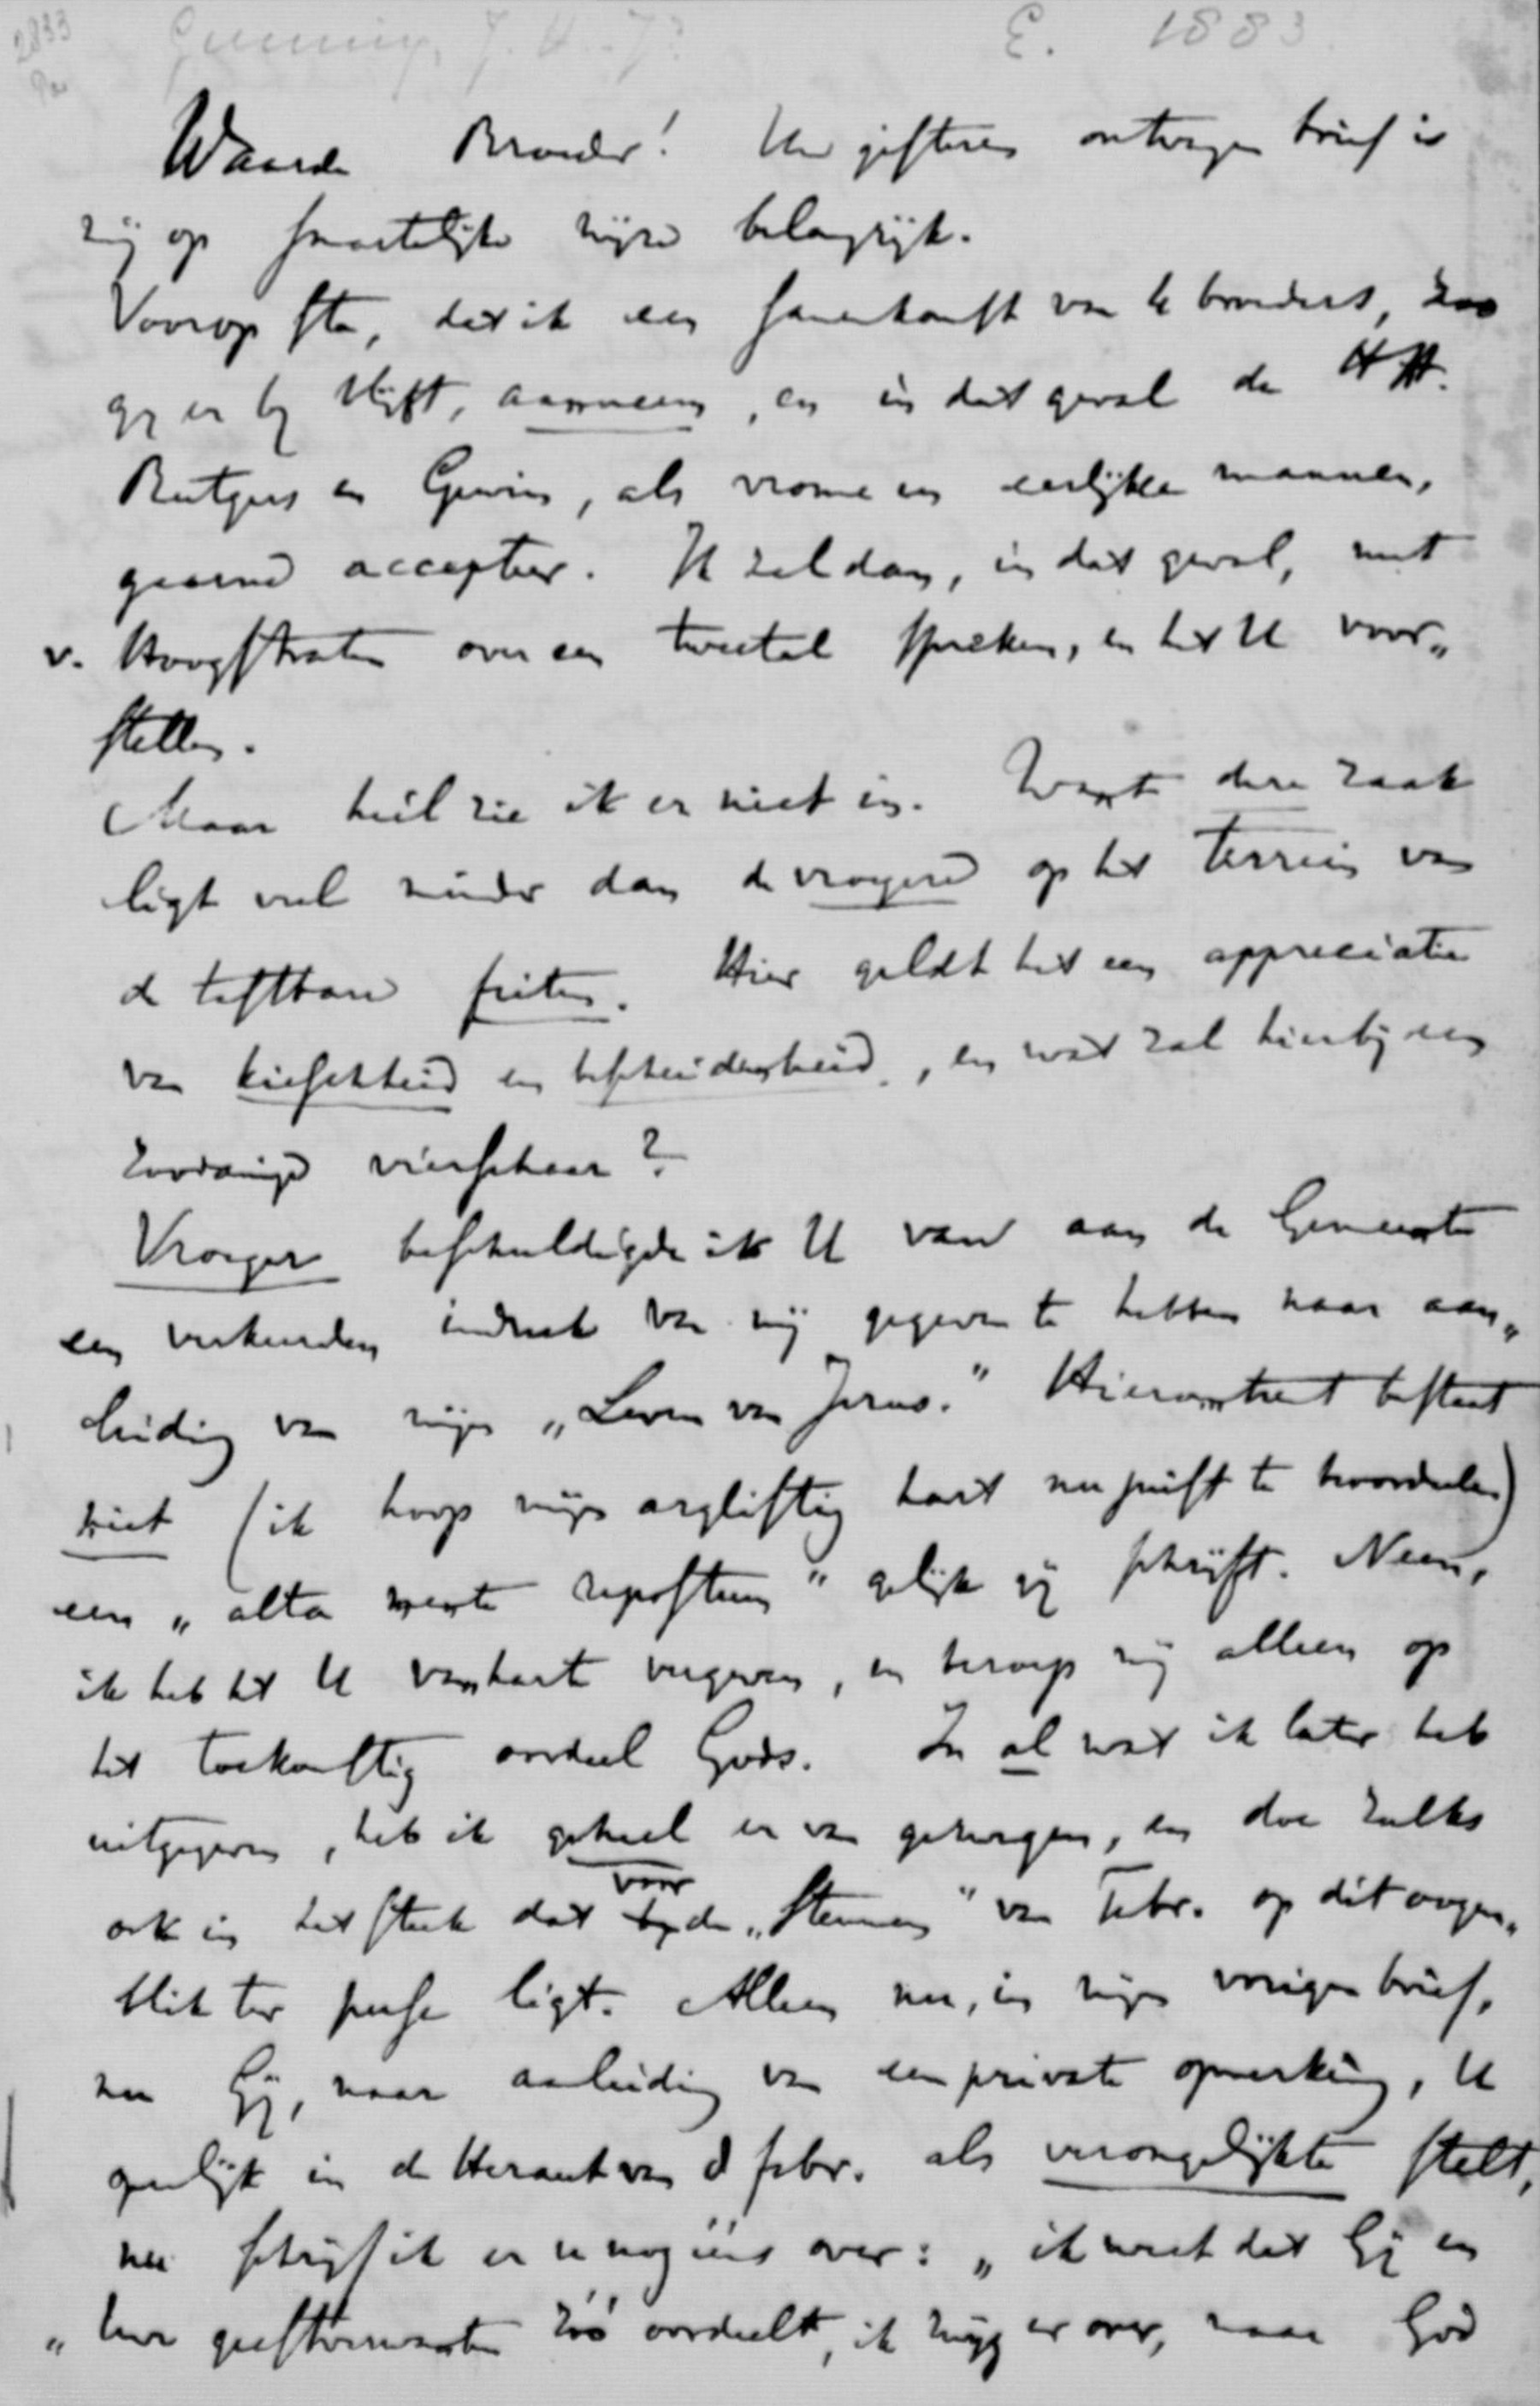 2833
Gunning, J. H. Jr E. 1883
Waarde Broeder! Uw gisteren ontvangen brief is
mij op smartelijke wijze belangrijk.
Voorop sta, dat ik een samenkomst van 4 broeders, zoo
gij er bij blijft, aanneem, en in dat geval de HH.
Rutgers en Gewin, als vrome en eerlijke mannen,
gaarne accepteer. Ik zal dan, in dat geval, met
v. Hoogstraten over een tweetal spreken, en het U voor„
stellen.
Maar heil zie ik er niet in. Want deze zaak
ligt veel minder dan de vroegere op het terrein van
de tastbare feiten. Hier geldt het een appreciatie
van kieschheid en bescheidenheid, en wat zal hierbij een
zoodanige vierschaar?
Vroeger beschuldigde ik U van aan de Gemeente
een verkeerden indruk van mij gegeven te hebben naar aan„
leiding van mijn „Leven van Jezus." Hieromtrent bestaat
niet (ik hoop mijn arglistig hart nu juist te beoordeelen)
een „alta mente repostum" gelijk gij schrijft. Neen,
ik heb het U van harte vergeven, en beroep mij alleen op
het toekomstig oordeel Gods. In al wat ik later heb
uitgegeven, heb ik geheel er van gezwegen, en doe zulks
ook in het stuk dat voor de „Stemmen" van Febr. op dit oogen„
blik ter perse ligt. Alleen nu, in mijn vorigen brief,
nu Gij, naar aanleiding van een private opmerking, U
openlijk in de Heraut van d febr. als verongelijkte stelt,
nu schrijf ik er U nog eens over: „ik weet dat Gij en
„Uw geestverwanten zóó oordeelt, ik zwijg er over, maar God